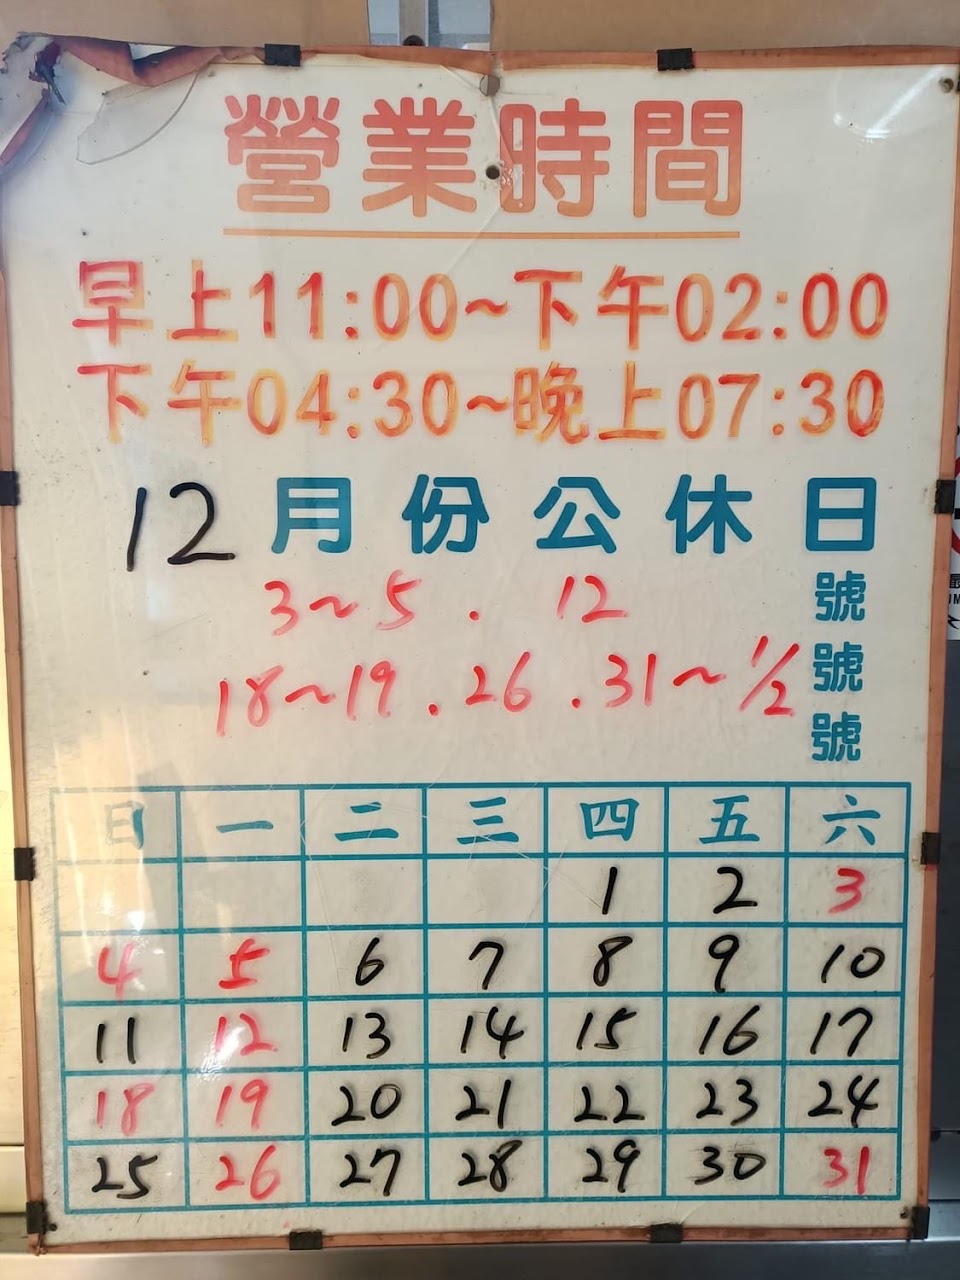 營業時間
早上11:00~下午02:00
下午04:30~晚上07:30
12月份公休日
3~5 . 12 號
18~19 . 26 . 31~1/2 號
號
日 一 二 三 四 五 六
1 2 3
4 5 6 7 8 9 10
11 12 13 14 15 16 17
18 19 20 21 22 23 24
25 26 27 28 29 30 31